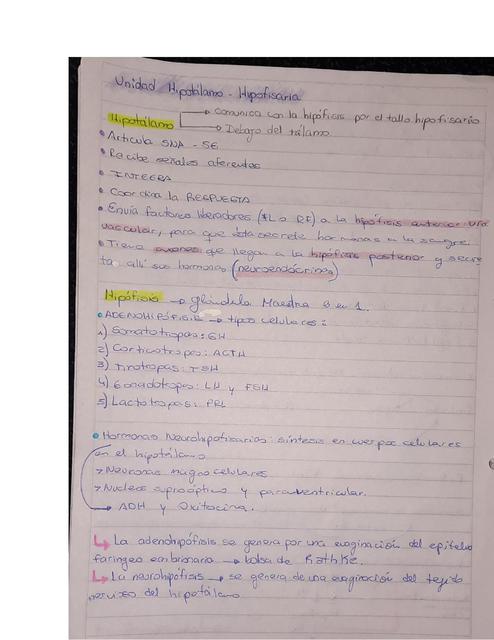 Unidad Hipotálamo - Hipofisaria
Hipotálamo → comunica con la hipófisis por el tallo hipofisario
→ Debajo del tálamo.
• Articula SNA - SE
• Recibe señales aferentes
• INTEGRA
• Coordina la RESPUESTA
• Envía factores liberadores (FL o RF) a la hipófisis anterior vía
vascular, para que ésta secrete hormonas a la sangre
• Tiene axones que llegan a la hipófisis posterior y secre
ta allí sus hormonas (neuroendócrinas)
Hipófisis → glándula Maestra 2 en 1.
• ADENOHIPÓFISIS → tipos celulares:
1) Somatotropas: GH
2) Corticotropas: ACTH
3) Tirotropas: TSH
4) Gonadotropas: LH y FSH
5) Lactotropas: PRL
• Hormonas Neurohipofisarias: síntesis en cuerpos celulares
en el hipotálamo
> Neuronas magnocelulares
> Nucleos supraóptico y paraventricular.
→ ADH y Oxitocina.
↳ La adenohipófisis se genera por una evaginación del epitelio
faríngeo embrionario → bolsa de Rathke.
↳ La neurohipófisis → se genera de una evaginación del tejido
nervioso del hipotálamo